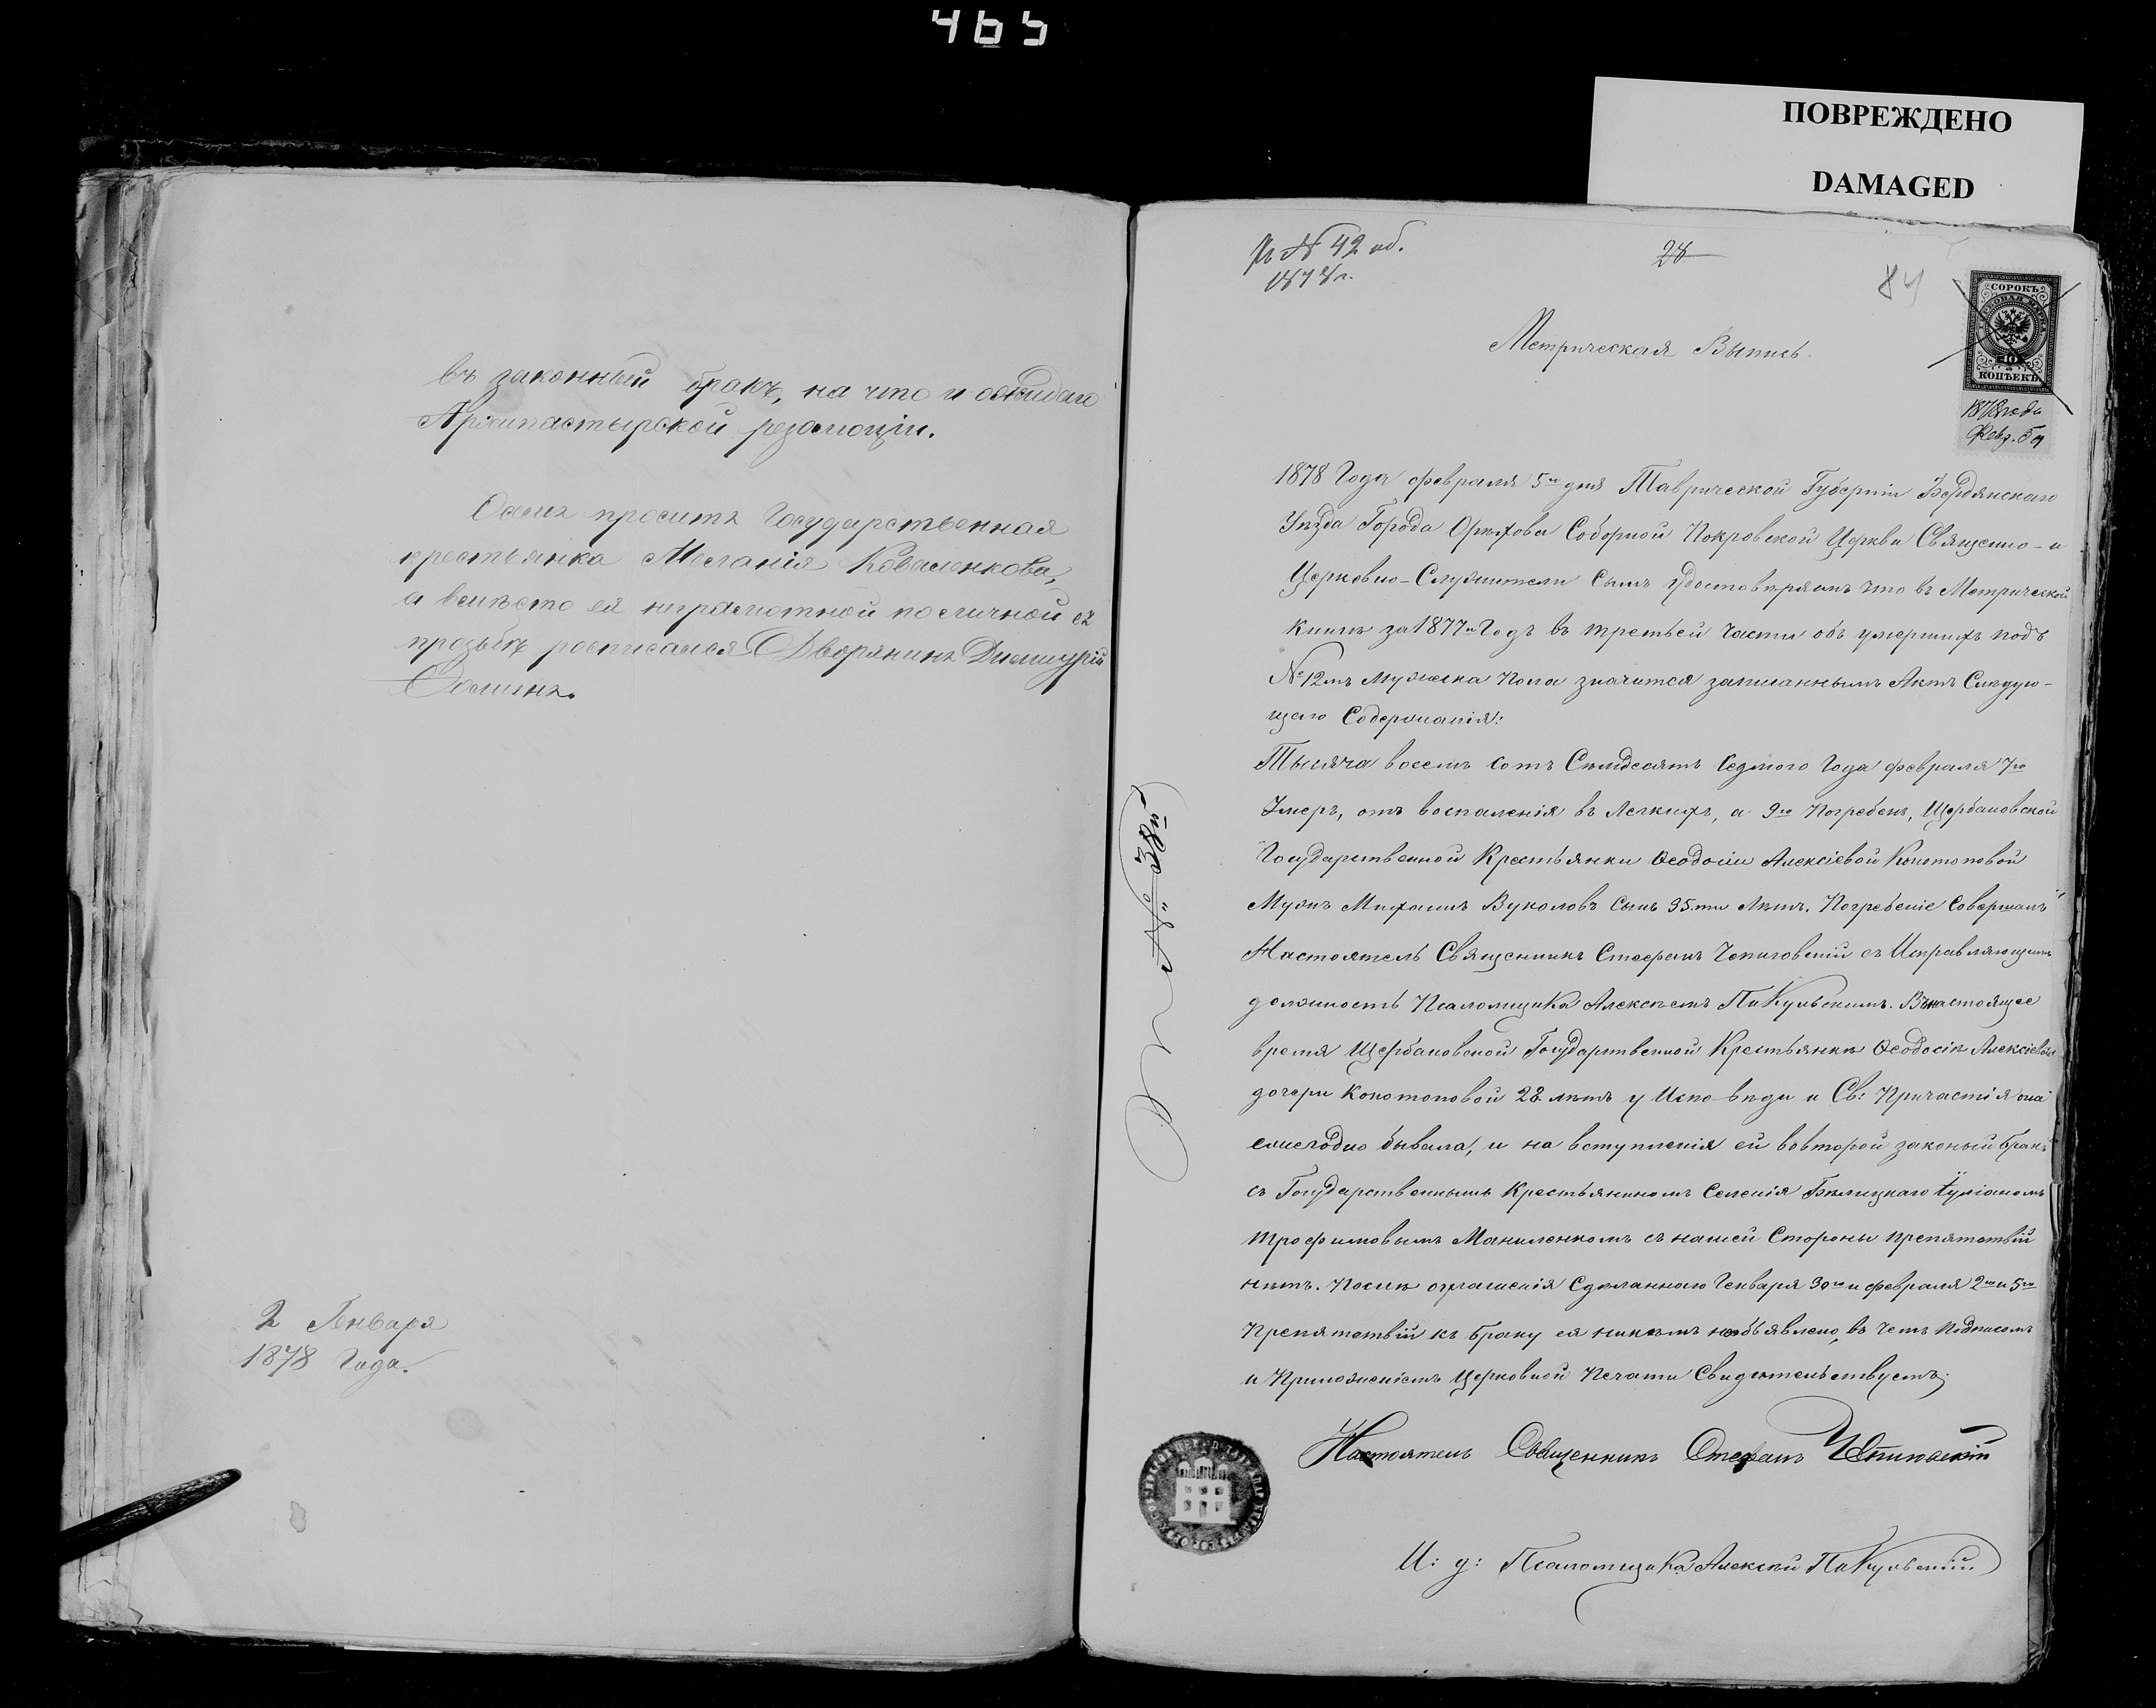 465
ПОВРЕЖДЕНО
DAMAGED
въ законный бракъ, на что и ожидаю
Архипастырской резолюціи.
Осемъ проситъ Государственная
крестьянка Меланія Коваленкова,
а вмѣсто ея неграмотной по личной ея
прозьбѣ росписался Дворянинъ Димитрій
2 Генваря
1878 Года.
№ 42 об.
1878 г.
28
84
СОРОКЪ
КОПѢЕКЪ
1878 года
Февр. 5 д
Метрическая Выпись.
1878 Года февраля 5го дня Таврической Губерніи Бердянскаго
Уѣзда Города Орѣхова Соборной Покровской Церкви Священно-и
Церковно-Служители Симъ удостовѣряемъ что въ Метрической
Книгѣ за 1877й Годъ въ третьей части объ умершихъ подъ
№ 12мъ Мужеска Пола значится записаннымъ Актъ Слѣдую-
щаго Содержанія:
Тысяча восемь сотъ Семдесятъ Седмого Года февраля 7го
Умеръ, отъ воспаленія въ Легкихъ, а 9го Погребенъ, Щербаковской
Государственной Крестьянки Ѳеодосіи Алексіевой Конотоповой
Мужъ Михаилъ Вуколовъ Сынъ 35ти Лѣтъ. Погребеніе Совершалъ
Настоятель Священникъ Стефанъ Чепиговскій съ Исправляющимъ
должность Псаломщика Алексѣемъ Пикульскимъ. Въ настоящее
время Щербаковской Государственной Крестьянкѣ Ѳеодосіи Алексіевой
дочери Конотоповой 28 лѣтъ у Исповѣди и Св: Причастія она
ежегодно бывала, и на вступленія ей вовторой законый бракъ
съ Государственнымъ Крестьяниномъ Селенія Бѣлицкаго Іуліаномъ
Трофимовымъ Маниленкомъ съ нашей Стороны препятствій
нѣтъ. Послѣ оглашенія Сдѣланнаго Генваря 30го и февраля 2го и 5го
Препятствій къ браку ея никѣмъ необъявлено, въ чемъ Подписомъ
и Приложеніемъ Церковной Печати Свидѣтельствуемъ;
№ 38й
Настоятель Священникъ Стефанъ Чепиговскій
И: д: Псаломщика Алексѣй Пикульскій